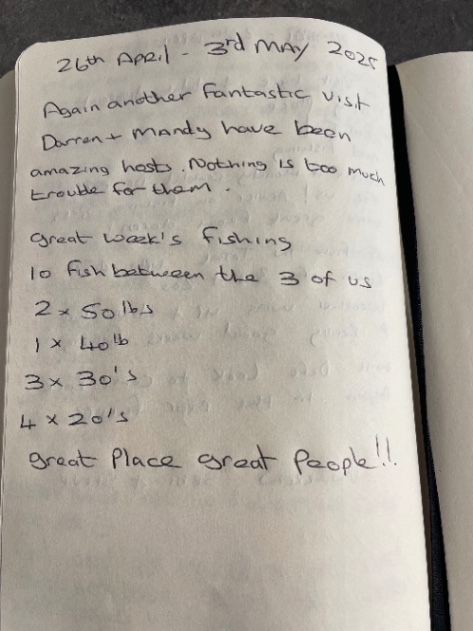 26th April - 3rd MAY 2025
Again another fantastic visit
Darren + Mandy have been
amazing hosts. Nothing is too much
trouble for them.
great week's fishing
10 fish between the 3 of us
2 x 50 lbs
1 x 40 lb
3 x 30's
4 x 20's
great Place great People!!